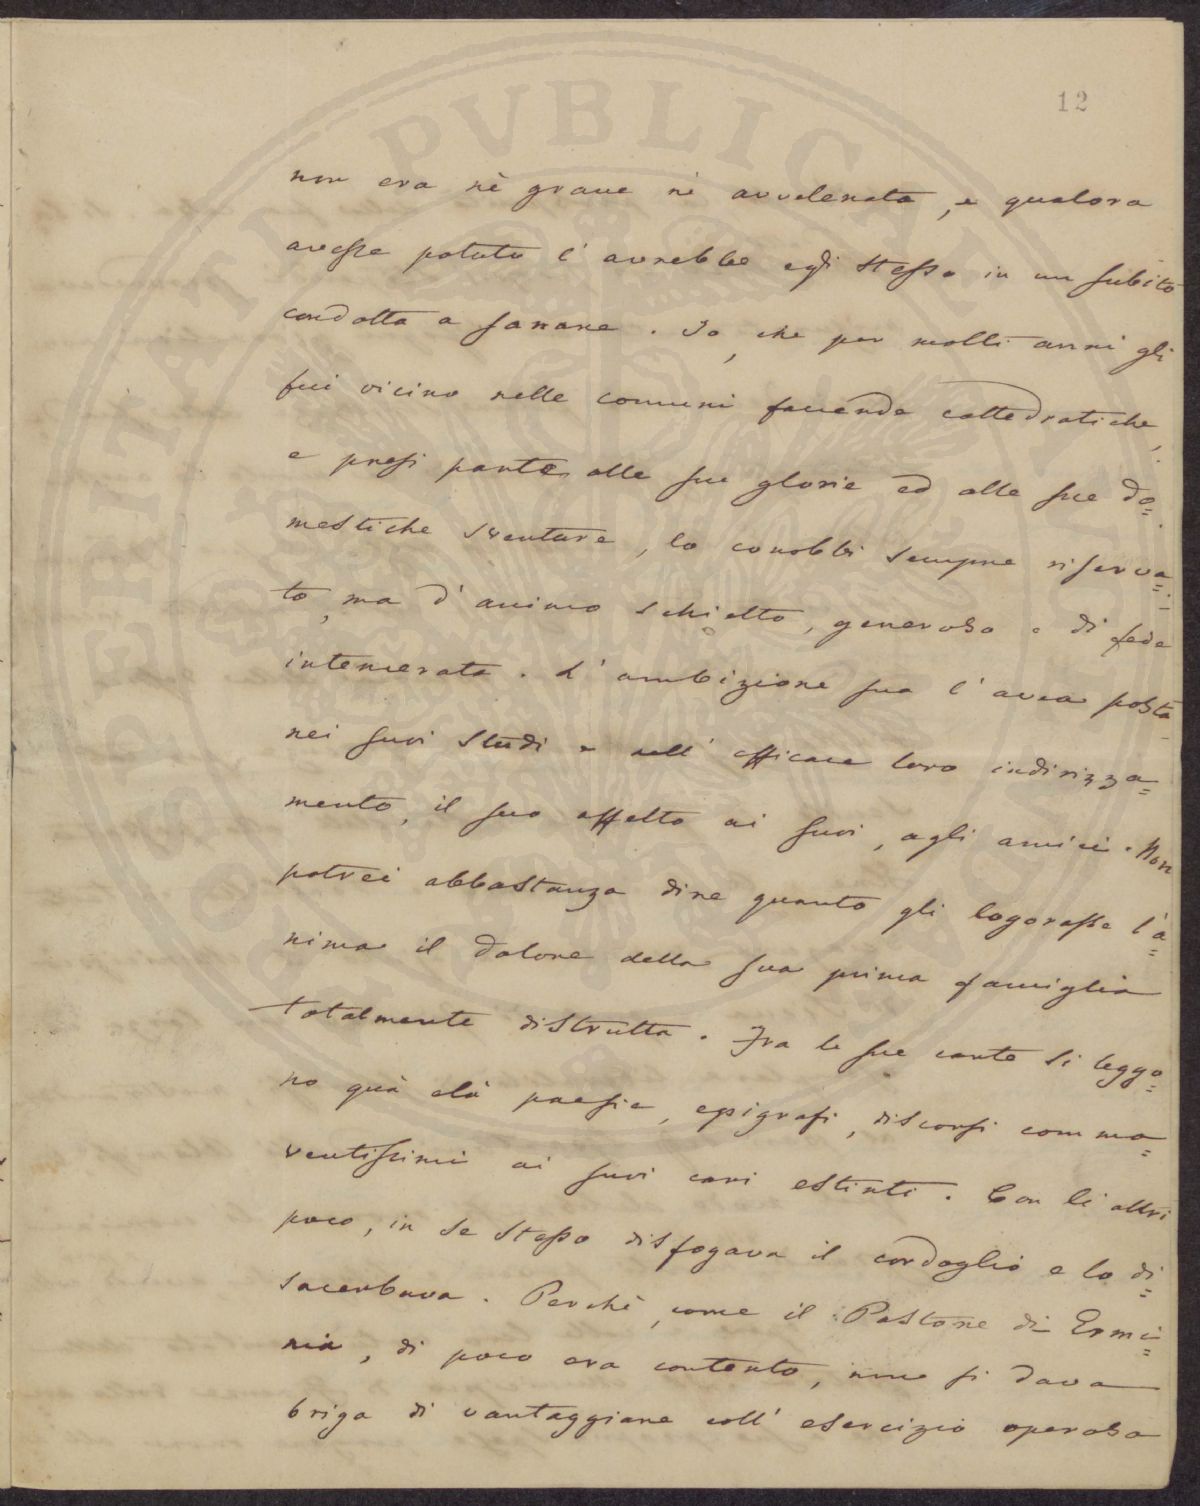 12
non era nè grave nè avvelenata, e qualora
avesse potuto l'avrebbe egli stesso in un subito
condotta a sanare. Io, che per molti anni gli
fui vicino nelle comuni faccende cattedratiche,
e presi parte alle sue glorie ed alle sue do=
mestiche sventure, lo conobbi sempre riserva=
to, ma d'animo schietto, generoso e di fede
intemerata. L'ambizione sua l'avea posta
nei suoi studi e nell'efficace loro indirizza=
mento, il suo affetto ai suoi, agli amici. Non
potrei abbastanza dire quanto gli logorasse l'a=
nima il dolore della sua prima famiglia
totalmente distrutta. Fra le sue carte si leggo=
no quà e là poesie, epigrafi, discorsi commo=
ventissimi ai suoi cari estinti. Con li altri
poco, in se stesso disfogava il cordoglio e lo di=
sacerbava. Perchè, come il Pastore di Ermi=
nia, di poco era contento, non si dava
briga di vantaggiare coll'esercizio operoso
PVBLICAE